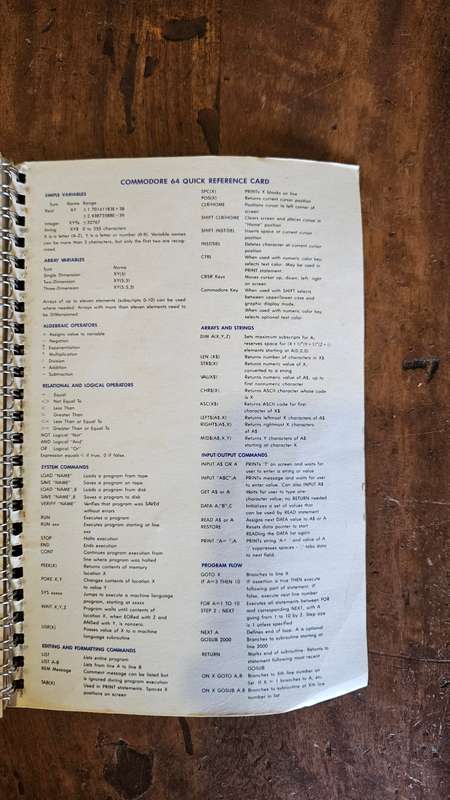 COMMODORE 64 QUICK REFERENCE CARD
SIMPLE VARIABLES
Type Name Range
Real XY
Integer XY% ±32767
String XY$ 0 to 255 characters
X is a letter (A-Z), Y is a letter or number (0-9). Variable names
can be more than 2 characters, but only the first two are recog-
nized.
ARRAY VARIABLES
Type Name
Single Dimension XY(5)
Two-Dimension XY(5,5)
Three-Dimension XY(5,5,5)
Arrays of up to eleven elements (subscripts 0-10) can be used
where needed. Arrays with more than eleven elements need to
be DIMensioned.
ALGEBRAIC OPERATORS
= Assigns value to variable
- Negation
Exponentiation
* Multiplication
/ Division
+ Addition
- Subtraction
RELATIONAL AND LOGICAL OPERATORS
= Equal
<> Not Equal To
< Less Than
> Greater Than
<= Less Than or Equal To
>= Greater Than or Equal To
NOT Logical "Not"
AND Logical "And"
OR Logical "Or"
Expression equals 1 if true, 0 if false.
SYSTEM COMMANDS
LOAD "NAME" Loads a program from tape
SAVE "NAME" Saves a program on tape
LOAD "NAME",8 Loads a program from disk
SAVE "NAME",8 Saves a program to disk
VERIFY "NAME" Verifies that program was SAVED
without errors
RUN Executes a program
RUN xxx Executes program starting at line
xxx
STOP Halts execution
END Ends execution
CONT Continues program execution from
line where program was halted
PEEK(X) Returns contents of memory
location X
POKE X,Y Changes contents of location X
to value Y
SYS xxxxx Jumps to execute a machine language
program, starting at xxxxx
WAIT X,Y,Z Program waits until contents of
location X, when EORed with Z and
ANDed with Y, is nonzero.
USR(X) Passes value of X to a machine
language subroutine
EDITING AND FORMATTING COMMANDS
LIST Lists entire program
LIST A-B Lists from line A to line B
REM Message Comment message can be listed but
is ignored during program execution
TAB(X) Used in PRINT statements. Spaces X
positions on screen
SPC(X) PRINTs X blanks on line
POS(X) Returns current cursor position
CLR/HOME Positions cursor to left corner of
screen
SHIFT CLR/HOME Clears screen and places cursor in
"Home" position
SHIFT INST/DEL Inserts space at current cursor
position
INST/DEL Deletes character at current cursor
position
CTRL When used with numeric color key,
selects text color. May be used in
PRINT statement.
CRSR Keys Moves cursor up, down, left, right
on screen
Commodore Key When used with SHIFT selects
between upper/lower case and
graphic display mode.
When used with numeric color key,
selects optional text color
ARRAYS AND STRINGS
DIM A(X,Y,Z) Sets maximum subscripts for A;
reserves space for (X + 1)*(Y + 1)*(Z + 1)
elements starting at A(0,0,0)
LEN (X$) Returns number of characters in X$
STR$(X) Returns numeric value of X,
converted to a string
VAL(X$) Returns numeric value of A$, up to
first nonnumeric character
CHR$(X) Returns ASCII character whose code
is X
ASC(X$) Returns ASCII code for first
character of X$
LEFT$(A$,X) Returns leftmost X characters of A$
RIGHT$(A$,X) Returns rightmost X characters
of A$
MID$(A$,X,Y) Returns Y characters of A$
starting at character X
INPUT/OUTPUT COMMANDS
INPUT A$ OR A PRINTs '?' on screen and waits for
user to enter a string or value
INPUT "ABC";A PRINTs message and waits for user
to enter value. Can also INPUT A$
GET A$ or A Waits for user to type one-
character value; no RETURN needed
DATA A,"B",C Initializes a set of values that
can be used by READ statement
READ A$ or A Assigns next DATA value to A$ or A
RESTORE Resets data pointer to start
READing the DATA list again
PRINT "A= ";A PRINTs string 'A=' and value of A
';' suppresses spaces - ',' tabs data
to next field.
PROGRAM FLOW
GOTO X Branches to line X
IF A=3 THEN 10 IF assertion is true THEN execute
following part of statement. IF
false, execute next line number
FOR A=1 TO 10 Executes all statements between FOR
STEP 2 : NEXT and corresponding NEXT, with A
going from 1 to 10 by 2. Step size
is 1 unless specified
NEXT A Defines end of loop. A is optional
GOSUB 2000 Branches to subroutine starting at
line 2000
RETURN Marks end of subroutine. Returns to
statement following most recent
GOSUB
ON X GOTO A,B Branches to Xth line number on
list. If X = 1 branches to A, etc.
ON X GOSUB A,B Branches to subroutine at Xth line
number in list